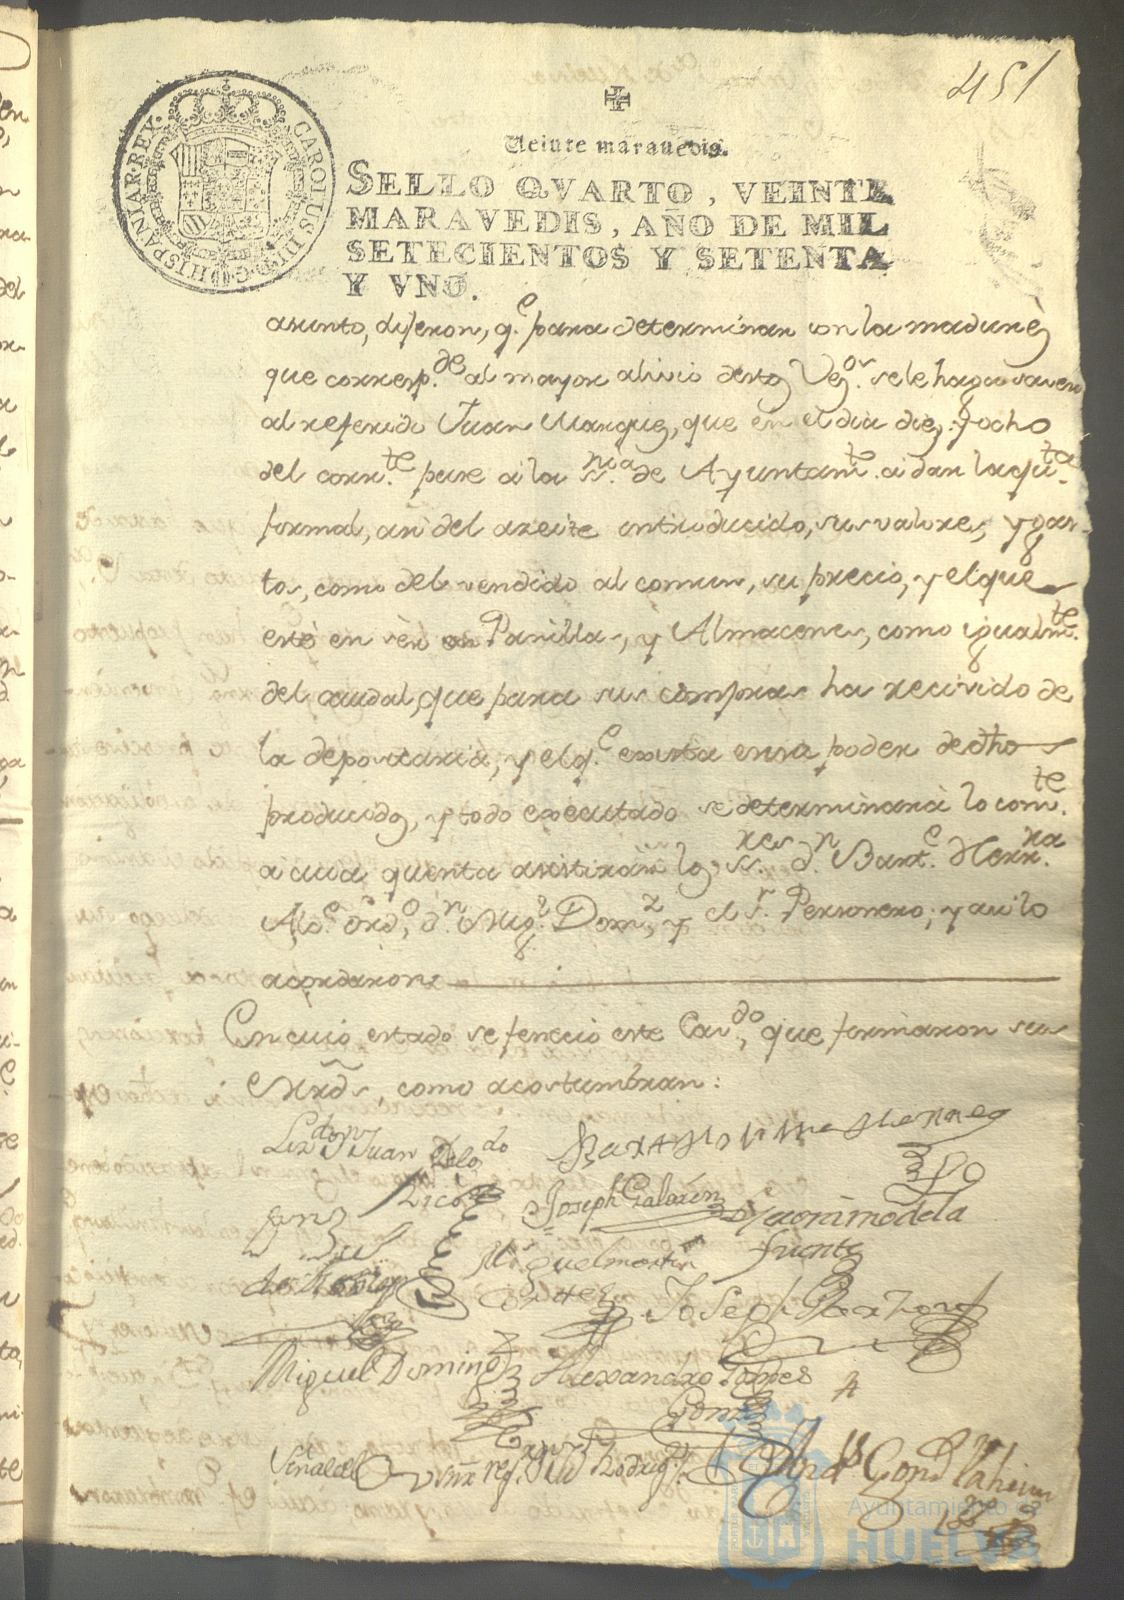 451
Veinte maravedis.
SELLO QVARTO, VEINTE
MARAVEDIS, AÑO DE MIL
SETECIENTOS Y SETENTA
Y VNO.
CAROLUS III D G HISPANIAR REX
asunto, dijeron, q.e para determinar con la madurèz
que corresp.de al mayor alivio destos Vez.os se le haga saver
al referido Juan Marquez, que en el dia diez, y ocho
del corr.te pase a la ss.ria de Ayuntam.to a dar la qu.ta
formal, asi del azeite introducido, sus valores, y gas-
tos, como del vendido al comun, su precio, y el que
esté en sèr en Panillas, y Almacenes, como igualm.te
del caudal, que para sus compras ha recivido de
la depositaria, y el q.e exista en su poder de dho
producido, y todo executado se determinarà lo com.te
a cuia quenta asistiràn los ss.res d.n Bart.e Herr.ra
Alc.e ord.o, d.n Mig.l Dom.z, y el s.r Personero; y asi lo
acordaron
En cuio estado se feneció este Cav.do, que firmaron sus
Mrds, como acostumbran:
Juan Delg.do
Bartholome Herrera
Rico
Joseph Galarin
Geronimo de la
fuente
Miguel Martin
Joseph
Miguel Doming.z
Alexandro
Gomez
Señal del
reg.or
Rodrig.z
Ayuntamiento de
HUELVA